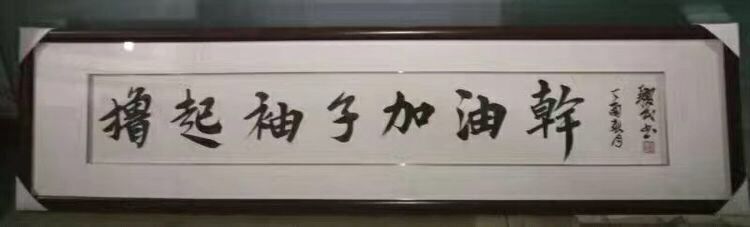 撸起袖子加油幹
丁酉秋月